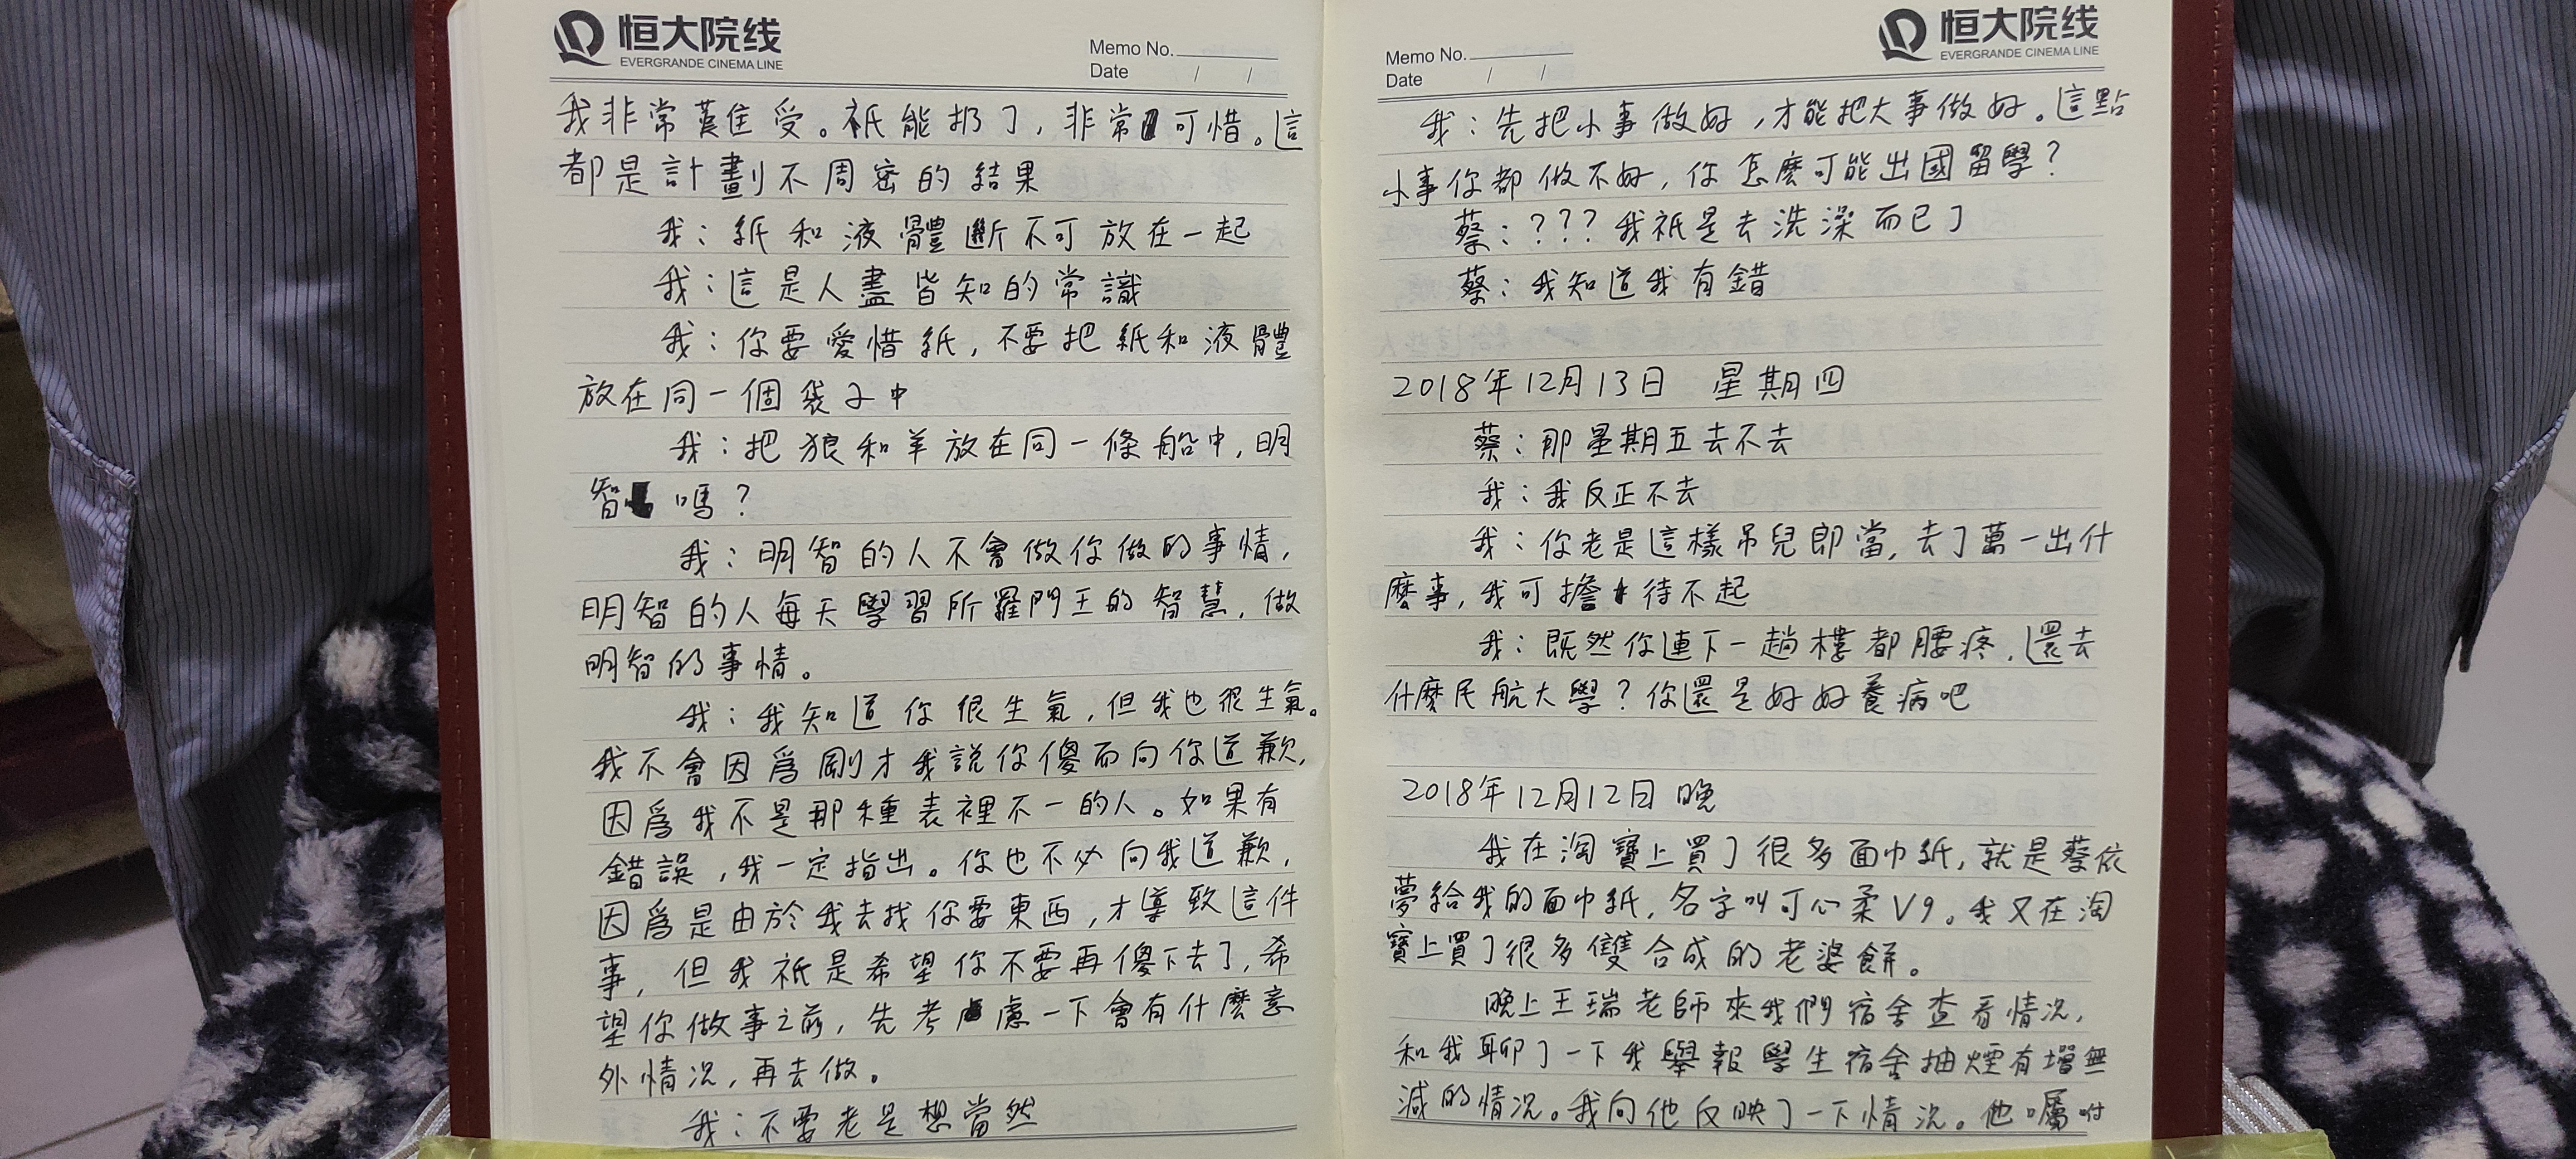 恒大院线
EVERGRANDE CINEMA LINE
Memo No.
Date / /
我非常難受。祇能扔了，非常可惜。這
都是計劃不周密的結果
我：紙和液體斷不可放在一起
我：這是人盡皆知的常識
我：你要愛惜紙，不要把紙和液體
放在同一個袋子中
我：把狼和羊放在同一條船中，明
智嗎？
我：明智的人不會做你做的事情，
明智的人每天學習所羅門王的智慧，做
明智的事情。
我：我知道你很生氣，但我也很生氣。
我不會因爲剛才我説你傻而向你道歉，
因爲我不是那種表裡不一的人。如果有
錯誤，我一定指出。你也不必向我道歉，
因爲是由於我去找你要東西，才導致這件
事，但我祇是希望你不要再傻下去了，希
望你做事之前，先考慮一下會有什麽意
外情况，再去做。
我：不要老是想當然
Memo No.
Date / /
恒大院线
EVERGRANDE CINEMA LINE
我：先把小事做好，才能把大事做好。這點
小事你都做不好，你怎麽可能出國留學？
蔡：？？？我祇是去洗澡而已了
蔡：我知道我有錯
2018年12月13日 星期四
蔡：那星期五去不去
我：我反正不去
我：你老是這樣吊兒郎當，去了萬一出什
麽事，我可擔待不起
我：既然你連下一趟樓都腰疼，還去
什麽民航大學？你還是好好養病吧
2018年12月12日 晚
我在淘寶上買了很多面巾紙，就是蔡依
夢給我的面巾紙，名字叫可心柔V9。我又在淘
寶上買了很多雙合成的老婆餅。
晚上王瑞老師來我們宿舍查看情况，
和我聊了一下我舉報學生宿舍抽煙有增無
減的情况。我向他反映了一下情况。他囑咐